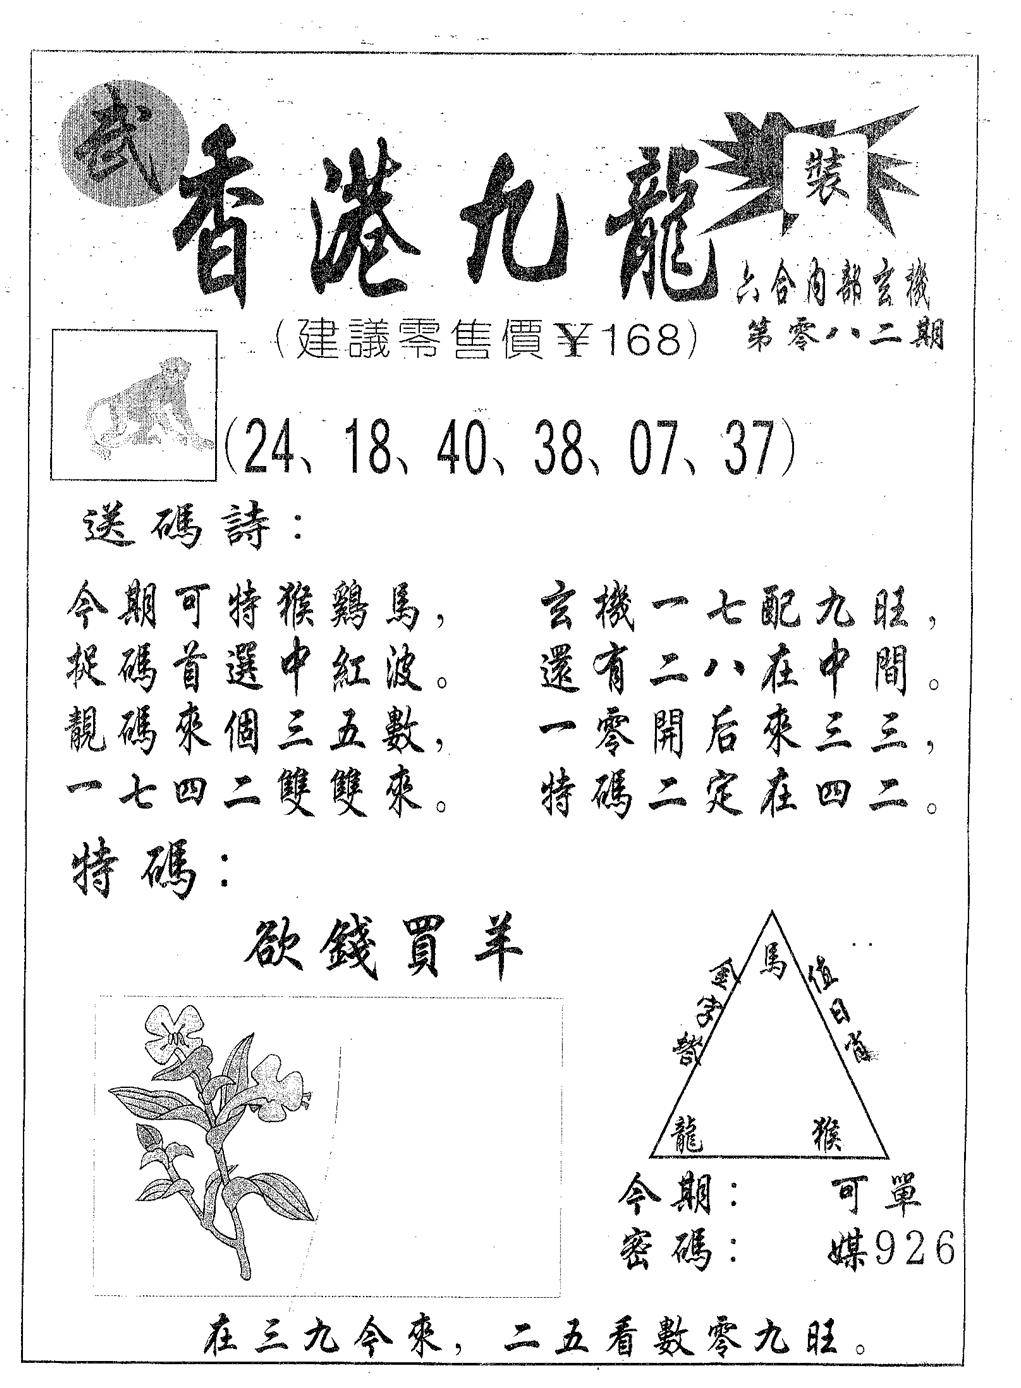 武
香港九龍
裝
六合内部玄機
第零八二期
(建議零售價¥168)
(24、18、40、38、07、37)
送碼詩：
今期可特猴鷄馬，
捉碼首選中紅波。
靚碼來個三五數，
一七四二雙雙來。
玄機一七配九旺，
還有二八在中間。
一零開后來三三，
特碼二定在四二。
特碼：
欲錢買羊
馬
值日肖
龍
猴
今期： 可單
密碼： 媒926
在三九今來，二五看數零九旺。